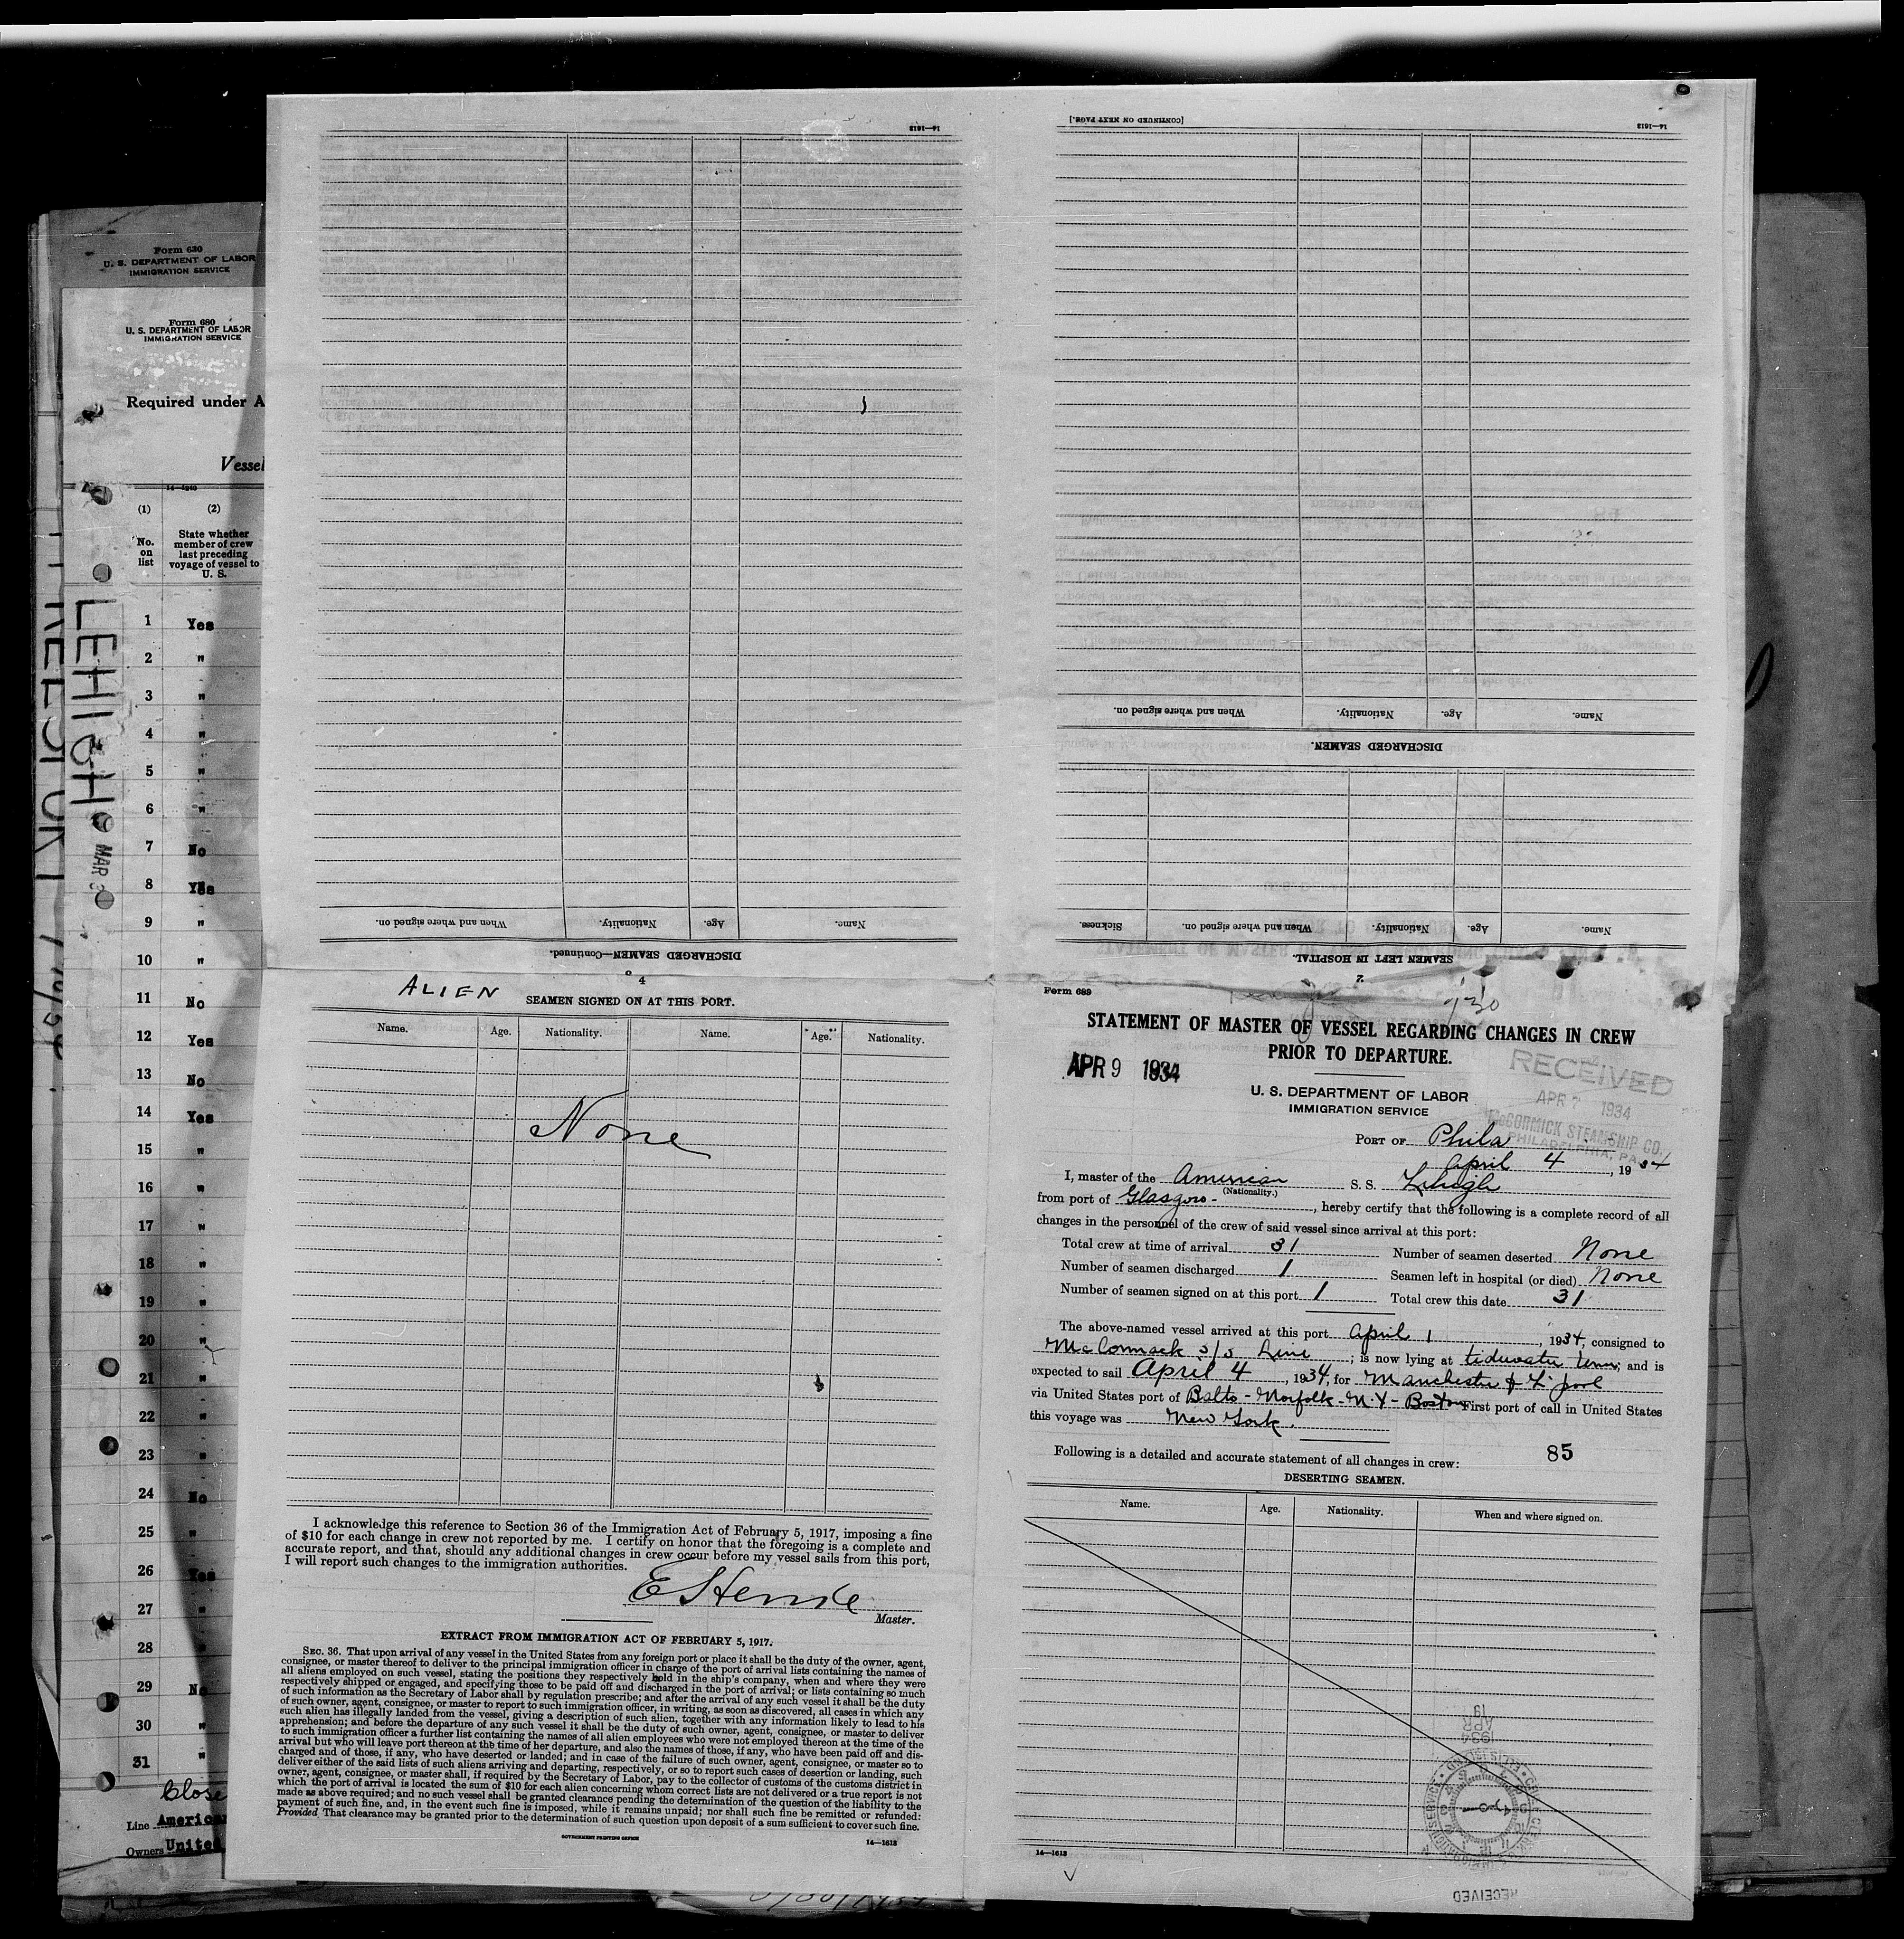 Form 630
U. S. DEPARTMENT OF LABOR
IMMIGRATION SERVICE
Form 680
U. S. DEPARTMENT OF LABOR
IMMIGRATION SERVICE
Required under A
Vessel
14—1240
(1)
(2)
No.
on
list
State whether
member of crew
last preceding
voyage of vessel to
U. S.
1 Yes
2 "
3 "
4 "
5 "
6 "
7 No
8 Yes
9 "
10 "
11 No
12 Yes
13 No
14 Yes
15 "
16 "
17 "
18 "
19 "
20 "
21 "
22 "
23 "
24 No
25 "
26 Yes
27 "
28 "
29 No
30 "
31 "
Close
Line American
Owners United
LEHIGH
MAR 3
14—1613
DISCHARGED SEAMEN—Continued.
Name.
Age.
Nationality.
When and where signed on.
[CONTINUED ON NEXT PAGE.]
14—1613
2
SEAMEN LEFT IN HOSPITAL.
Name.
Age.
Nationality.
When and where signed on.
Sickness.
DISCHARGED SEAMEN.
Name.
Age.
Nationality.
When and where signed on.
4
ALIEN
SEAMEN SIGNED ON AT THIS PORT.
Name.
Age.
Nationality.
Name.
Age.
Nationality.
None
I acknowledge this reference to Section 36 of the Immigration Act of February 5, 1917, imposing a fine
of $10 for each change in crew not reported by me. I certify on honor that the foregoing is a complete and
accurate report, and that, should any additional changes in crew occur before my vessel sails from this port,
I will report such changes to the immigration authorities.
Master.
EXTRACT FROM IMMIGRATION ACT OF FEBRUARY 5, 1917.
SEC. 36. That upon arrival of any vessel in the United States from any foreign port or place it shall be the duty of the owner, agent,
consignee, or master thereof to deliver to the principal immigration officer in charge of the port of arrival lists containing the names of
all aliens employed on such vessel, stating the positions they respectively hold in the ship's company, when and where they were
respectively shipped or engaged, and specifying those to be paid off and discharged in the port of arrival; or lists containing so much
of such information as the Secretary of Labor shall by regulation prescribe; and after the arrival of any such vessel it shall be the duty
of such owner, agent, consignee, or master to report to such immigration officer, in writing, as soon as discovered, all cases in which any
such alien has illegally landed from the vessel, giving a description of such alien, together with any information likely to lead to his
apprehension; and before the departure of any such vessel it shall be the duty of such owner, agent, consignee, or master to deliver
to such immigration officer a further list containing the names of all alien employees who were not employed thereon at the time of the
arrival but who will leave port thereon at the time of her departure, and also the names of those, if any, who have been paid off and dis-
charged and of those, if any, who have deserted or landed; and in case of the failure of such owner, agent, consignee, or master so to
deliver either of the said lists of such aliens arriving and departing, respectively, or so to report such cases of desertion or landing, such
owner, agent, consignee, or master shall, if required by the Secretary of Labor, pay to the collector of customs of the customs district in
which the port of arrival is located the sum of $10 for each alien concerning whom correct lists are not delivered or a true report is not
made as above required; and no such vessel shall be granted clearance pending the determination of the question of the liability to the
payment of such fine, and, in the event such fine is imposed, while it remains unpaid; nor shall such fine be remitted or refunded:
Provided That clearance may be granted prior to the determination of such question upon deposit of a sum sufficient to cover such fine.
GOVERNMENT PRINTING OFFICE
14—1613
Form 689
STATEMENT OF MASTER OF VESSEL REGARDING CHANGES IN CREW
PRIOR TO DEPARTURE.
APR 9 1934
RECEIVED
APR 7 1934
McCORMICK STEAMSHIP CO.
PHILADELPHIA, PA.
U. S. DEPARTMENT OF LABOR
IMMIGRATION SERVICE
PORT OF Phila
April 4, 1934
I, master of the American S. S. Lehigh
(Nationality.)
from port of Glasgow, hereby certify that the following is a complete record of all
changes in the personnel of the crew of said vessel since arrival at this port:
Total crew at time of arrival 31 Number of seamen deserted None
Number of seamen discharged 1 Seamen left in hospital (or died) None
Number of seamen signed on at this port 1 Total crew this date 31
The above-named vessel arrived at this port April 1, 1934, consigned to
McCormack S/S Line; is now lying at tidewater term; and is
expected to sail April 4, 1934, for Manchester & L'pool
via United States port of Balto - Norfolk - N.Y - Boston First port of call in United States
this voyage was New York.
Following is a detailed and accurate statement of all changes in crew: 85
DESERTING SEAMEN.
Name.
Age.
Nationality.
When and where signed on.
1934
APR
19
14—1613
RECEIVED